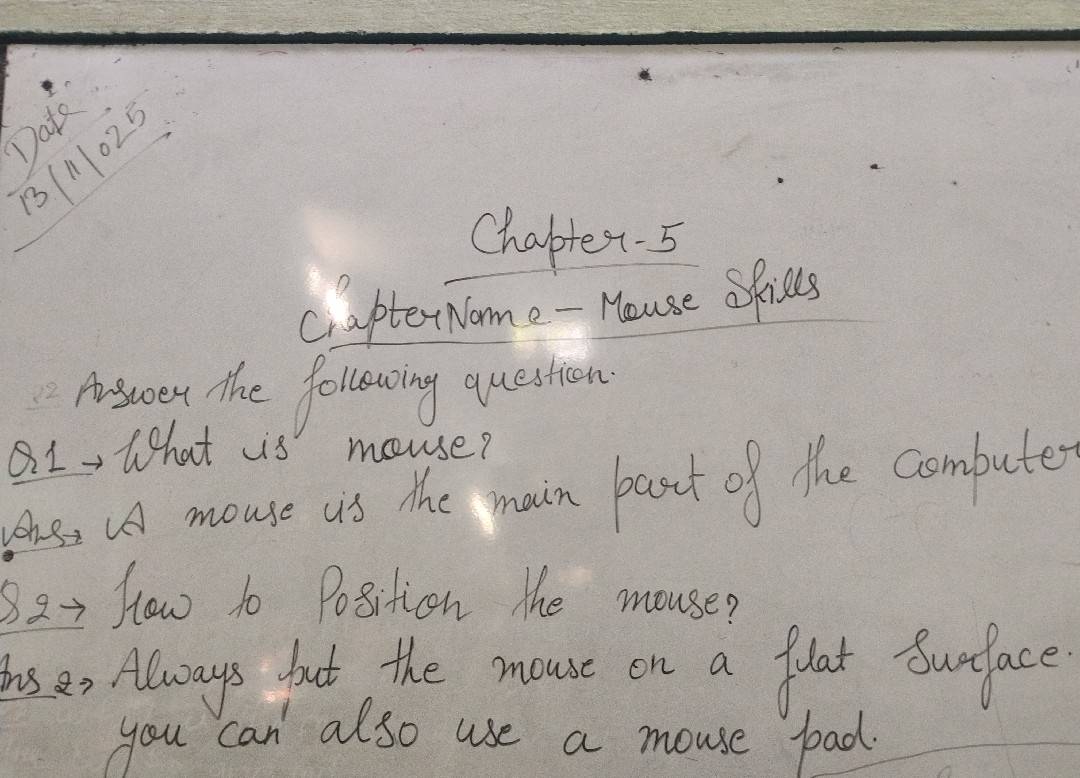 Date
13/11/025
Chapter-5
Chapter Name - Mouse Skills
Answer the following question.
Q1 → What is mouse?
Ans→ A mouse is the main part of the computer
Q2→ How to Position the mouse?
Ans 2→ Always put the mouse on a flat Surface.
you can also use a mouse pad.